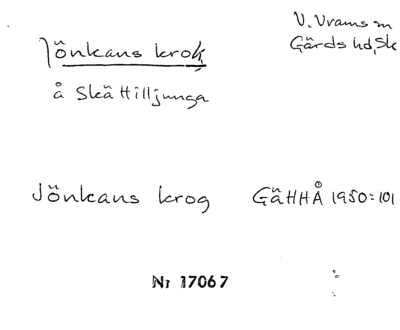 V. Vrams sn
Gärds hd, Sk
Jönkans krok
å Skättilljunga
Jönkans krog GäHHÅ 1950:101
Nr 17067